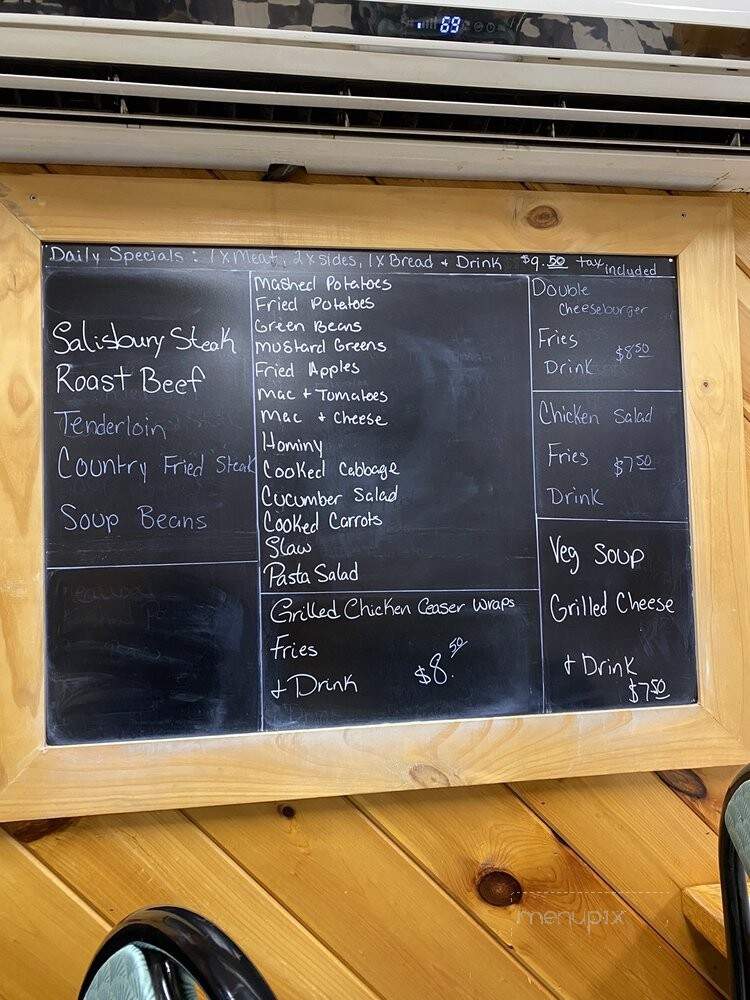 69
Daily Specials : 1xMeat, 2xsides, 1xBread + Drink $9.50 tax included
Salisbury Steak
Roast Beef
Tenderloin
Country Fried Steak
Soup Beans
Mashed Potatoes
Fried Potatoes
Green Beans
Mustard Greens
Fried Apples
Mac + Tomatoes
Mac + Cheese
Hominy
Cooked Cabbage
Cucumber Salad
Cooked Carrots
Slaw
Pasta Salad
Grilled Chicken Ceaser Wraps
Fries
+ Drink $8.50
Double
Cheeseburger
Fries
Drink $8.50
Chicken Salad
Fries $7.50
Drink
Veg Soup
Grilled Cheese
+ Drink
$7.50
menupix